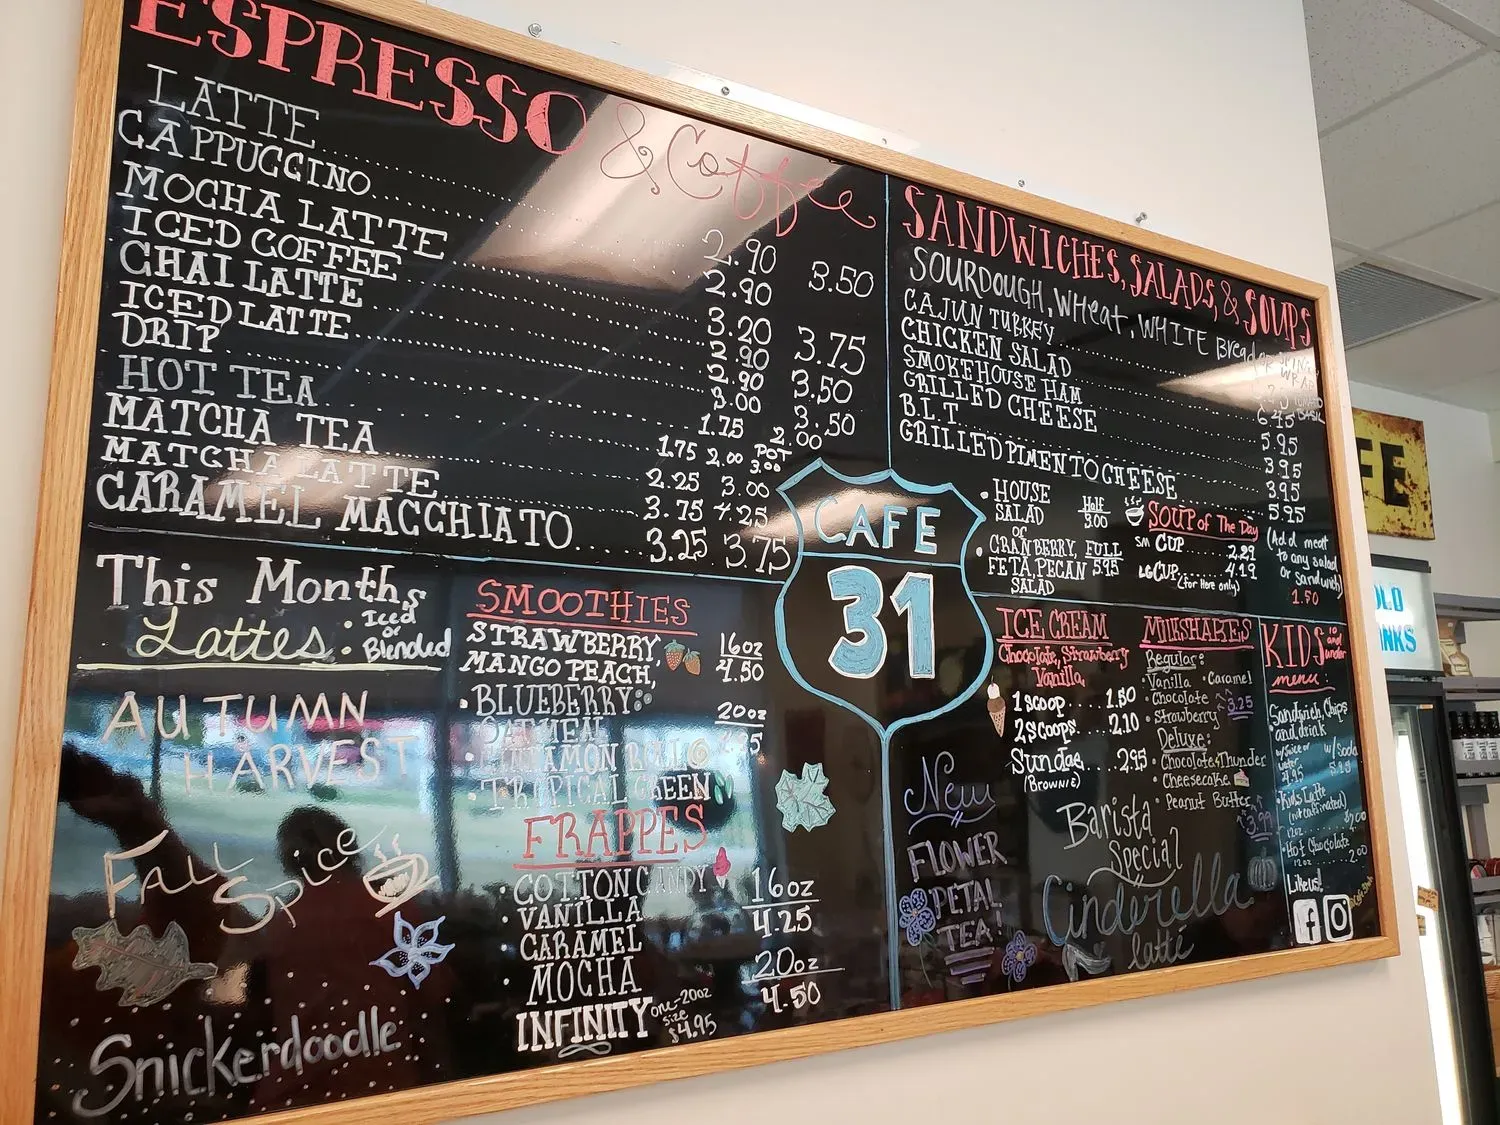 ESPRESSO & Coffee
LATTE 2.90 3.50
CAPPUCCINO 2.90
MOCHA LATTE 3.20 3.75
ICED COFFEE 2.90
CHAI LATTE 2.90 3.50
ICED LATTE 3.00 3.50
DRIP 1.75 2.00
HOT TEA 1.75 2.00 POT 3.00
MATCHA TEA 2.25 3.00
MATCHA LATTE 3.75 4.25
CARAMEL MACCHIATO 3.25 3.75
This Months
Lattes: Iced or Blended
AUTUMN
HARVEST
Fall Spice
Snickerdoodle
SMOOTHIES
STRAWBERRY, 16oz
MANGO PEACH, 4.50
BLUEBERRY
20oz
OATMEAL
CINNAMON ROLL
TROPICAL GREEN
FRAPPES
COTTON CANDY 16oz
VANILLA 4.25
CARAMEL
MOCHA 20oz
4.50
INFINITY one-20oz size $4.95
CAFE
31
SANDWICHES, SALADS, & SOUPS
SOURDOUGH, WHEAT, WHITE Bread
CAJUN TURKEY
CHICKEN SALAD 6.45
SMOKEHOUSE HAM 5.95
GRILLED CHEESE 3.95
B.L.T. 3.95
GRILLED PIMENTO CHEESE 5.95
HOUSE SALAD Half 3.00
or
CRANBERRY, FETA, PECAN SALAD FULL 5.95
SOUP of The Day
SM CUP 2.29
LG CUP 4.19
(for Here only)
(Add meat
to any salad
or sandwich)
1.50
ICE CREAM
Chocolate, Strawberry
Vanilla
1 scoop 1.80
2 scoops 2.10
Sundae 2.95
(BROWNIE)
MILKSHAKES
Regular:
Vanilla Caramel
Chocolate 3.25
Strawberry
Deluxe:
Chocolate Thunder
Cheesecake
Peanut Butter 3.99
KIDS 10 and under
menu:
Sandwich, Chips
and drink
w/Juice or water 4.95 w/Soda
Kids Latte
(not caffeinated)
12oz 2.00
Hot Chocolate
12oz 2.00
Like us!
f
New
FLOWER
PETAL
TEA!
Barista
Special
Cinderella
latte
FE
OLD
INKS